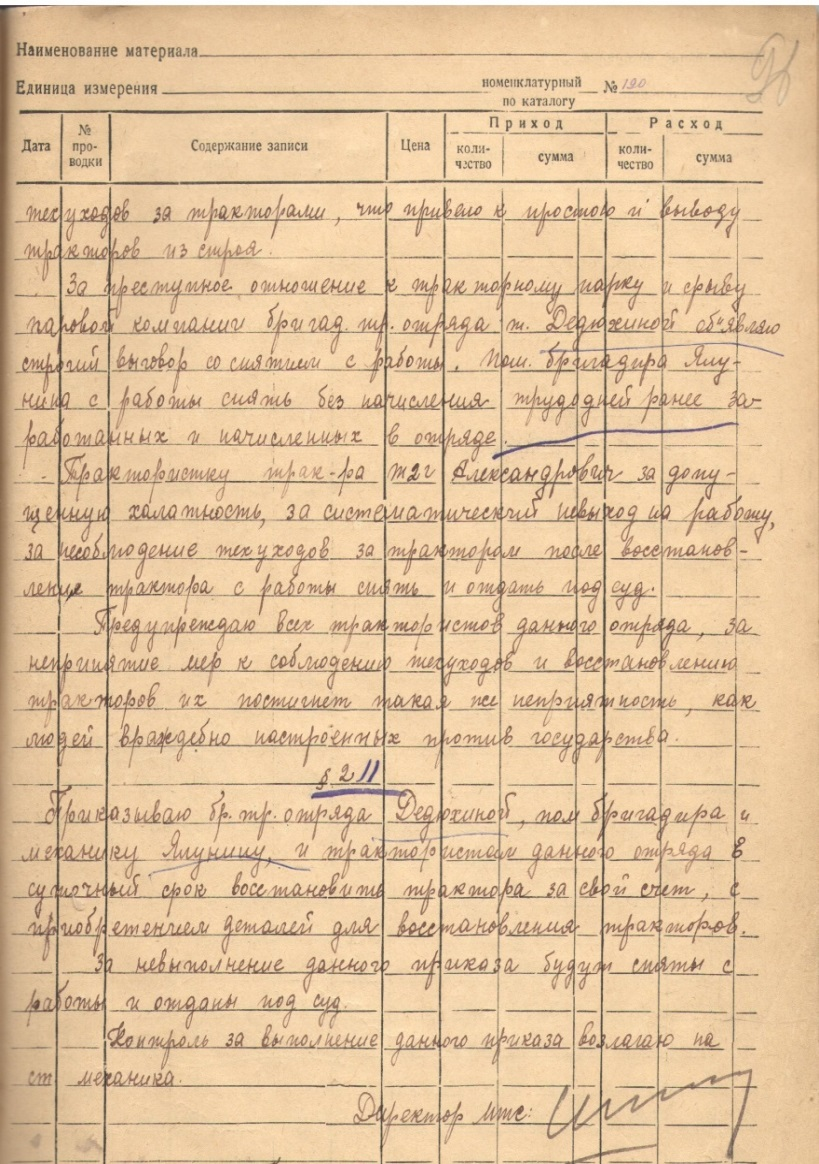 Наименование материала
Единица измерения номенклатурный № 190
по каталогу
96
Дата № про-водки Содержание записи Цена Приход Расход
коли-чество сумма коли-чество сумма
техуходов за тракторами, что привело к простою и выводу
тракторов из строя.
За преступное отношение к тракторному парку и срыву
паровой компании бригад. тр. отряда т. Дедюхиной об'являю
строгий выговор со снятием с работы. Пом. бригадира Ялу-
нина с работы снять без начисления трудодней ранее за-
работанных и начисленных в отряде.
Трактористку трак-ра т2г Александрович за допу-
щенную халатность, за систематический невыход на работу,
за несоблюдение техуходов за трактором после восстанов-
ление трактора с работы снять и отдать под суд.
Предупреждаю всех трактористов данного отряда, за
неприятие мер к соблюдению техуходов и восстановлению
тракторов их постигнет такая же неприятность, как
людей враждебно настроенных против государства.
§ 2 11
Приказываю бр. тр. отряда Дедюхиной, пом бригадира и
механику Ялунину, и трактористам данного отряда в
суточный срок восстановить трактора за свой счет, с
приобретением деталей для восстановления тракторов.
За невыполнение данного приказа будут сняты с
работы и отданы под суд.
Контроль за выполнение данного приказа возлагаю на
ст механика.
Директор мтс: